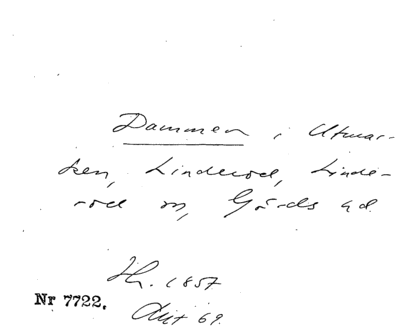 Dammen i Utmar-
ken, Linderöd, Linde-
röd sn, Gärds hd.
Hr. 1857
Nr 7722.
Akt 69.